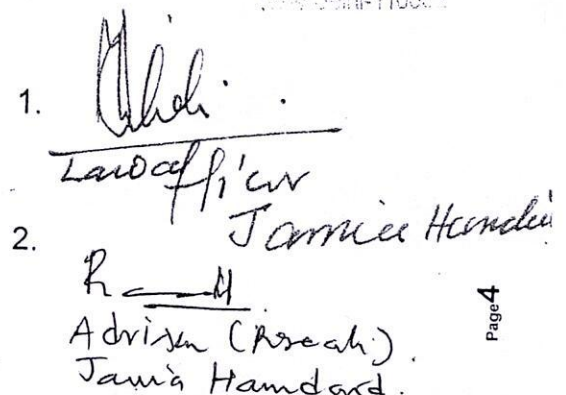 1.
Law Officer
Jamia Hamda
2.
Adviser (Reseach)
Jamia Hamdard.
Page4